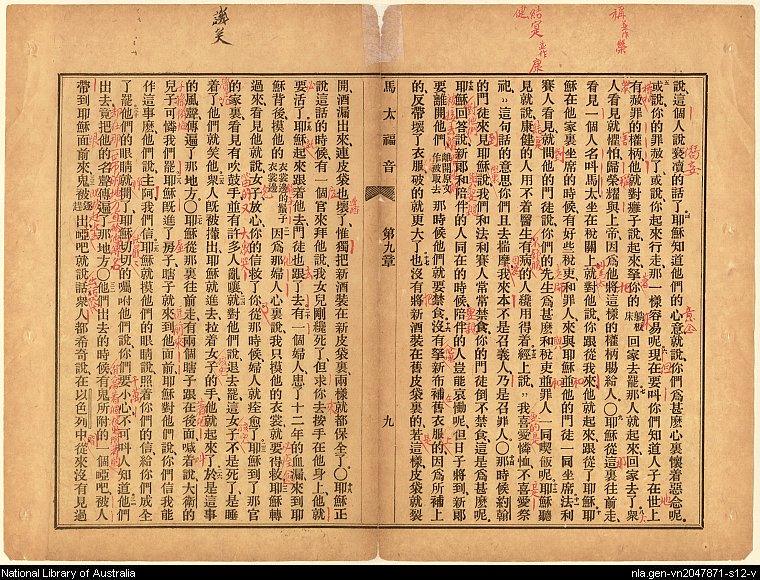 譏笑
說、這個人說褻凟的話了、耶穌知道他們的心意就說、你們爲甚麼心裏懷着惡念呢、
或說你的罪赦了、或說你起來行走、那一樣容易呢、現在要叫你們知道人子在世上
有赦罪的權柄、他就對癱子說、起來拏你的牀躺板回家去罷、那人就起來、回家去了、衆
人看見就懼怕、歸榮耀與上帝、因爲他將這樣的權柄賜給人〇耶穌從這裏往前走、
看見一個人名叫馬太、坐在稅關上、就對他說、你跟從我來、他就起來、跟從了耶穌、耶
穌在他家裏坐席的時候、有好些稅吏和罪人來、與耶穌並他的門徒一同坐席、法利
賽人看見就問他的門徒說、你們的先生爲甚麼和稅吏並罪人一同喫飯呢、耶穌聽
見就說、康健的人用不着醫生、有病的人纔用得着、經上說、我喜愛憐恤不喜愛祭
祀、這句話的意思、你們且去揣摩、我來本不是召義人、乃是召罪人〇那時候約翰
的門徒來見耶穌說、我們和法利賽人常常禁食、你的門徒倒不禁食、這是爲甚麼呢、
耶穌回答說、新郎和陪伴的人同在的時候、陪伴的人豈能哀慟呢、但日子將到、新郎
要離開他們、離開原文作被取去那時候他們就要禁食、沒有拏新布補舊衣服的、因爲所補上
的反帶壞了衣服、破的就更大了、也沒有將新酒裝在舊皮袋裏的、若這樣、皮袋就裂
馬太福音 第九章 九
開、酒漏出來、連皮袋也壞了、惟獨把新酒裝在新皮袋裏、兩樣就都保全了、〇耶穌正
說這話的時候、有一個官來拜他說、我女兒剛纔死了、但求你去按手在他身上、他就
要活了、耶穌起來跟着他去、門徒也跟了去、有一個婦人患了十二年的血漏、來到耶
穌背後、摸他的衣裳邊的繸子衣裳邊因爲那婦人心裏說、我只摸他的衣裳、就要得救、耶穌轉
過來看見他、就說、女子放心、你的信救了你、從那時候婦人就痊愈了、耶穌到了那官
的家裏、看見有吹手、並有許多人亂嚷、就對他們說、退去罷、這女子不是死了、是睡
着了、他們就笑他、衆人旣被攆出、耶穌就進去、拉着女子的手、他就起來了、於是這事
的風聲傳遍了那地方〇耶穌從那裏往前走、有兩個瞎子跟在後面、喊着說、大衛的
兒子、可憐我們罷、耶穌旣進了房子、瞎子就來到他面前、耶穌對他們說、你們信我能
作這事麽、他們說、主阿、我們信、耶穌就摸他們的眼睛說、照着你們的信給你們成全
了罷、他們的眼睛就開了、耶穌切切的囑咐他們說、你們要小心、不可叫人知道、他們
出去、竟把他的名聲傳遍了那地方〇他們出去的時候、有鬼所附的一個啞吧、被人
帶到耶穌面前來、鬼被趕出、啞吧就說話、衆人都希奇說、在以色列中從來沒有見過
National Library of Australia
nla.gen-vn2047871-s12-v